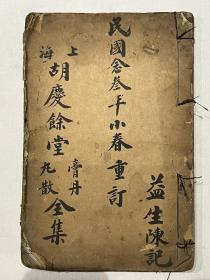 民國念叁年小春重訂
上海胡慶餘堂膏丹丸散全集
益生陳記